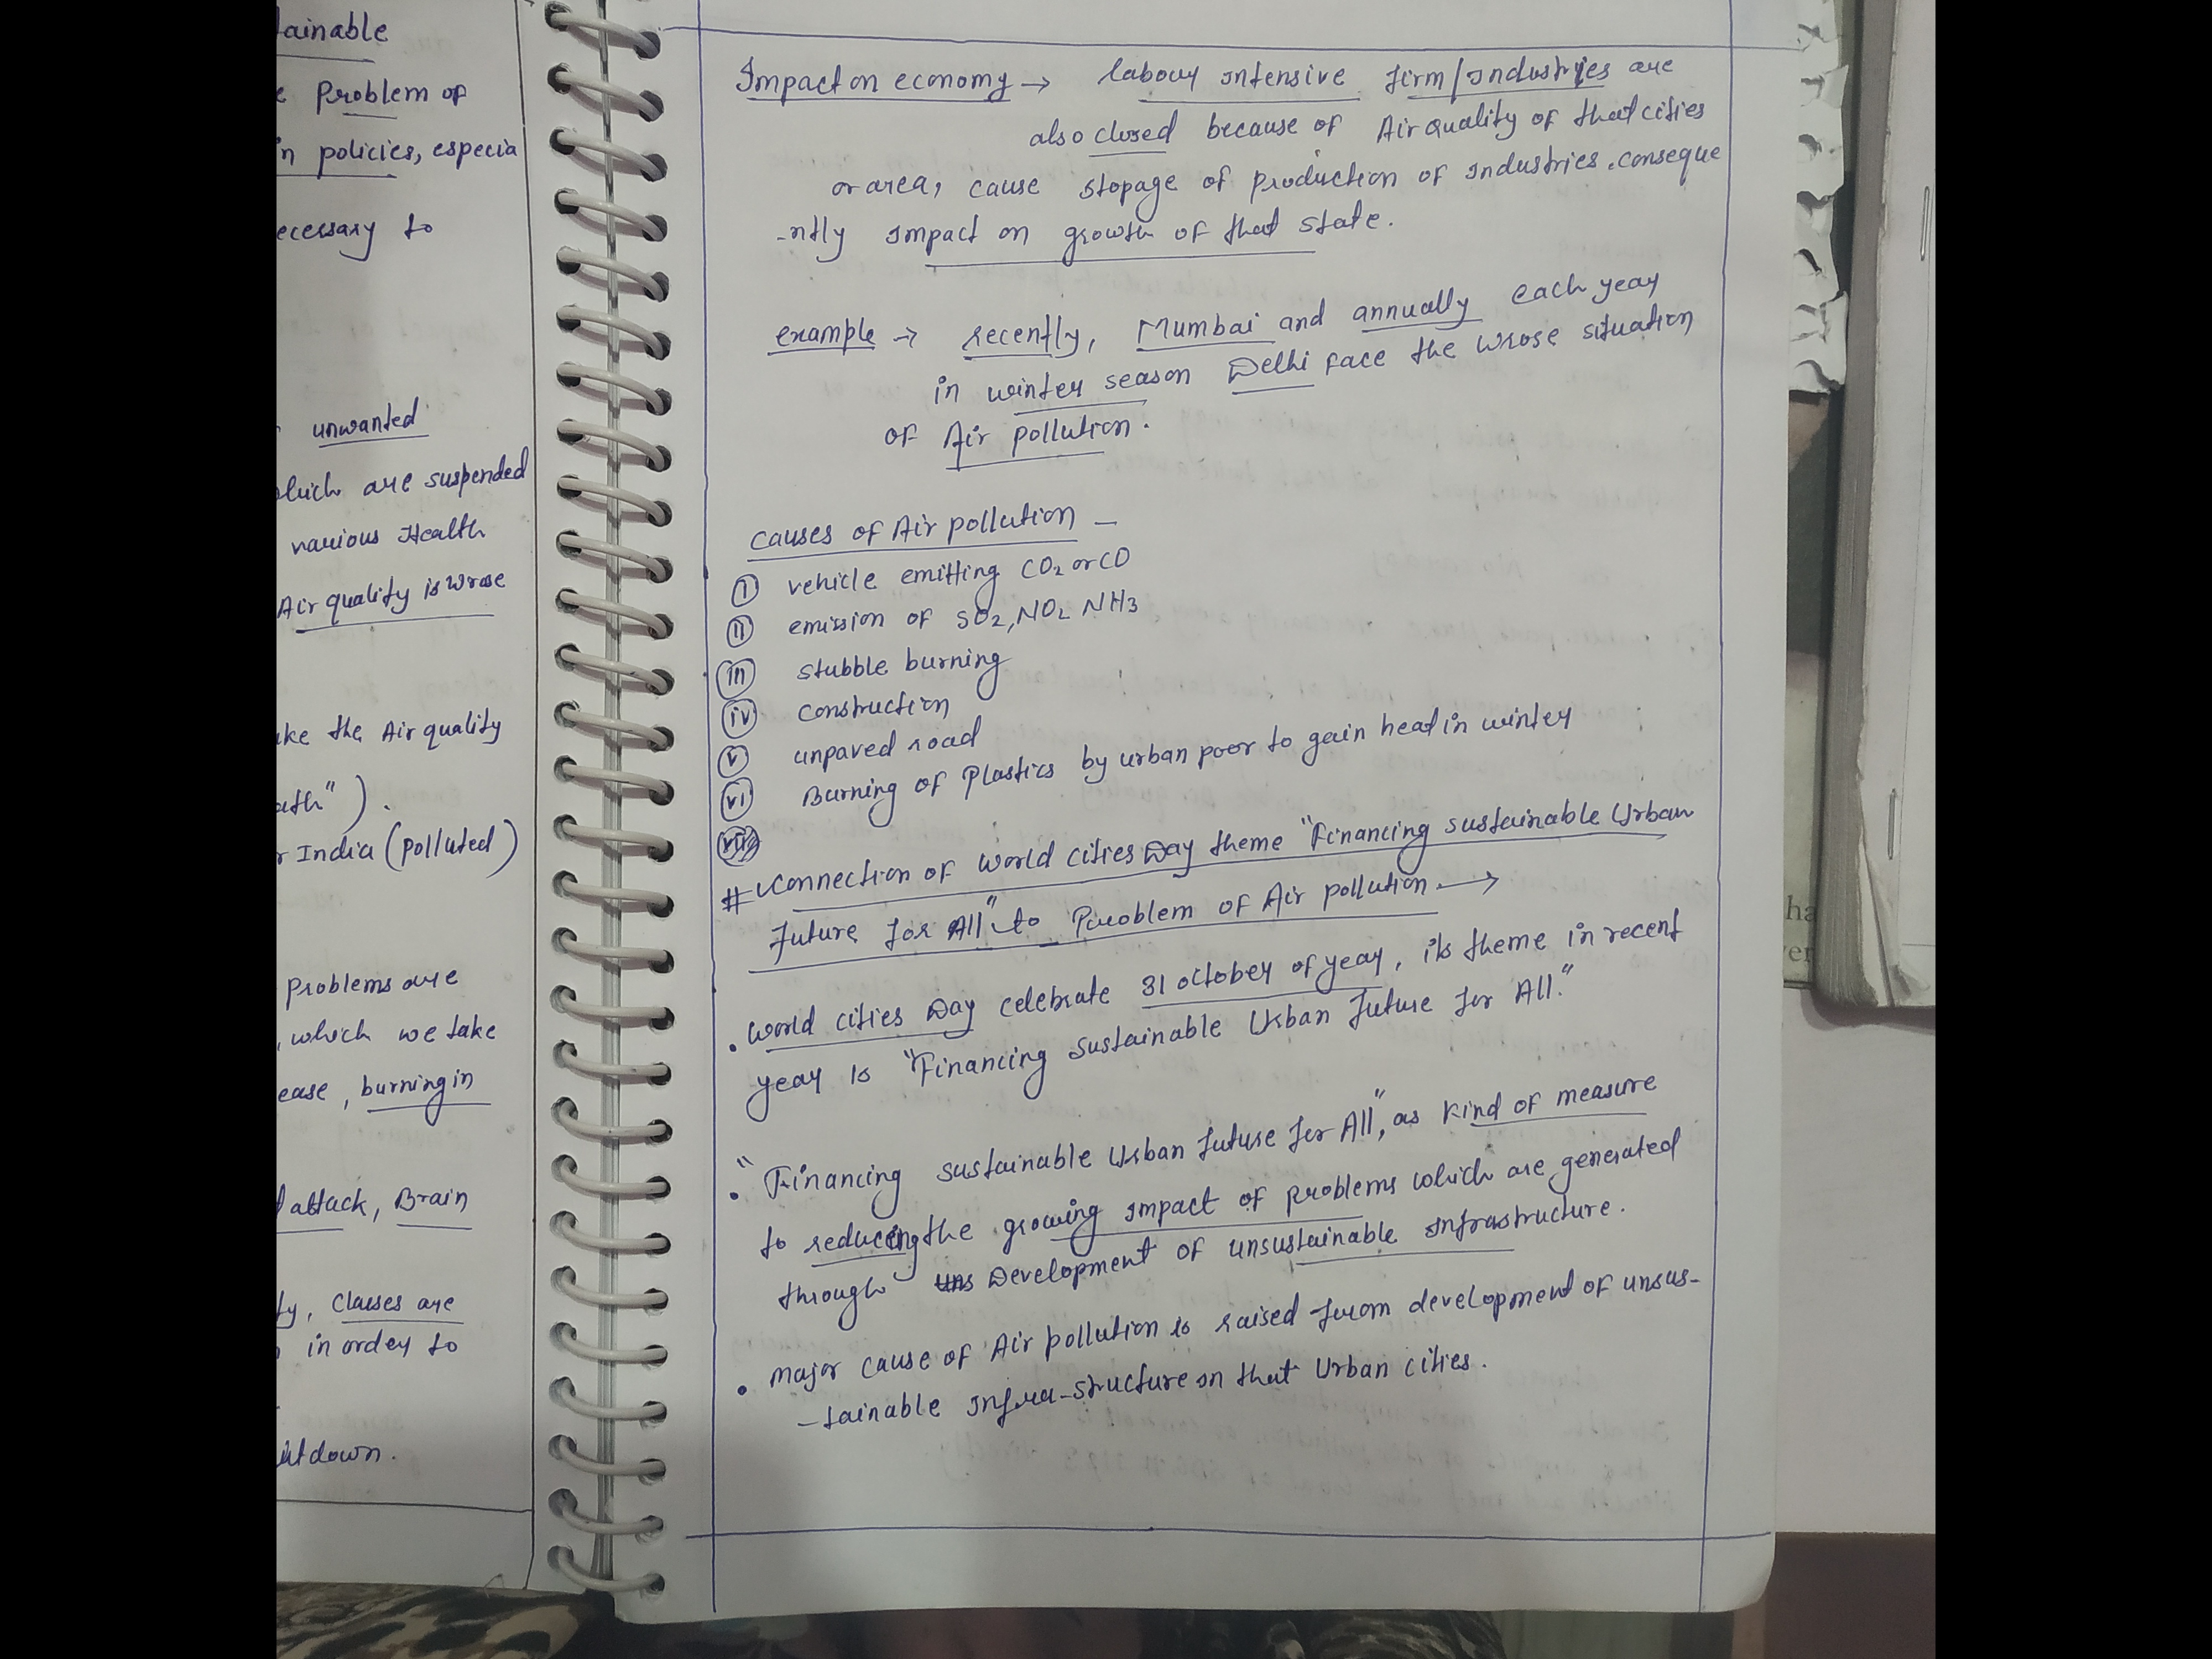 tainable
Problem of
in policies, especia
ecessary to
unwanted
which are suspended
various Health
Air quality is wrose
ake the Air quality
ath").
r India (polluted)
Problems are
, which we take
ease, burning in
attack, Brain
ty, Classes are
in order to
utdown.
Impact on economy → labour intensive firm/industries are
also closed because of Air quality of that cities
or area, cause stopage of production of industries. conseque
-ntly impact on growth of that state.
example → recently, Mumbai and annually each year
in winter season Delhi face the wrose situation
of Air pollution.
causes of Air pollution –
(i) vehicle emitting CO₂ or CO
(ii) emission of SO₂, NO₂ NH₃
(iii) stubble burning
(iv) construction
(v) unpaved road
(vi) Burning of Plastics by urban poor to gain heat in winter
(vii)
# Connection of World Cities Day theme "Financing sustainable Urban
Future for All" to Problem of Air pollution. →
. World cities Day celebrate 31 october of year, its theme in recent
year is "Financing sustainable Urban Future for All."
. "Financing sustainable Urban future for All", as kind of measure
to reducing the growing impact of problems which are generated
through Development of unsustainable infrastructure.
. major cause of Air pollution is raised from development of unsus-
-tainable infra-structure in that Urban cities.
ha
ver